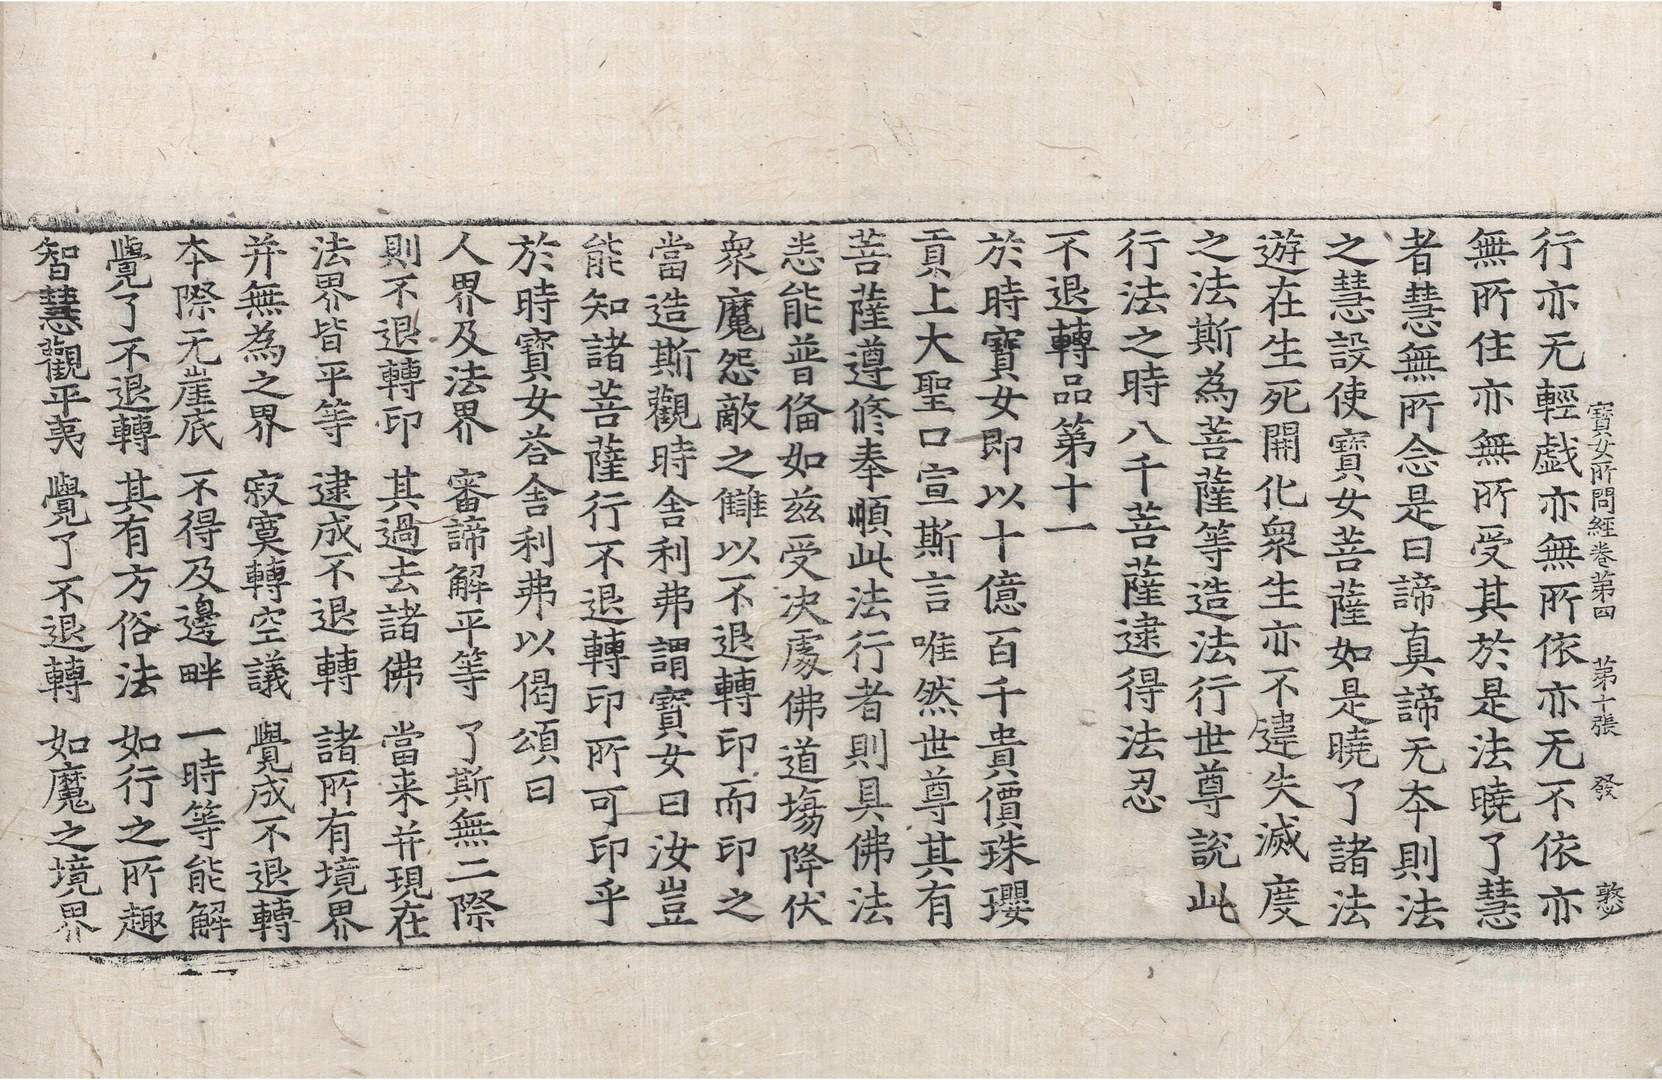 寶女所問經卷第四　第十張　發　憼
行亦无輕戱亦無所依亦无不依亦
無所住亦無所受其於是法曉了慧
者慧無所念是曰諦真諦无夲則法
之慧設使寶女菩薩如是曉了諸法
遊在生死開化衆生亦不違失滅度
之法斯為菩薩等造法行世尊說此
行法之時八千菩薩逮得法忍
不退轉品第十一
於時寶女即以十億百千貴價珠瓔
貢上大聖口宣斯言唯然世尊其有
菩薩遵修奉順此法行者則具佛法
悉能普俻如兹受决處佛道塲降伏
衆魔怨敵之讎以不退轉印而印之
當造斯觀時舍利弗謂寶女曰汝豈
能知諸菩薩行不退轉印所可印乎
於時寶女荅舍利弗以偈頌曰
人界及法界　審諦解平等　了斯無二際
則不退轉印　其過去諸佛　當来并現在
法界皆平等　逮成不退轉　諸所有境界
并無為之界　寂寞轉空議　覺成不退轉
夲際无崖底　不得及邊畔　一時等能解
覺了不退轉　其有方俗法　如行之所趣
智慧觀平夷　覺了不退轉　如魔之境界